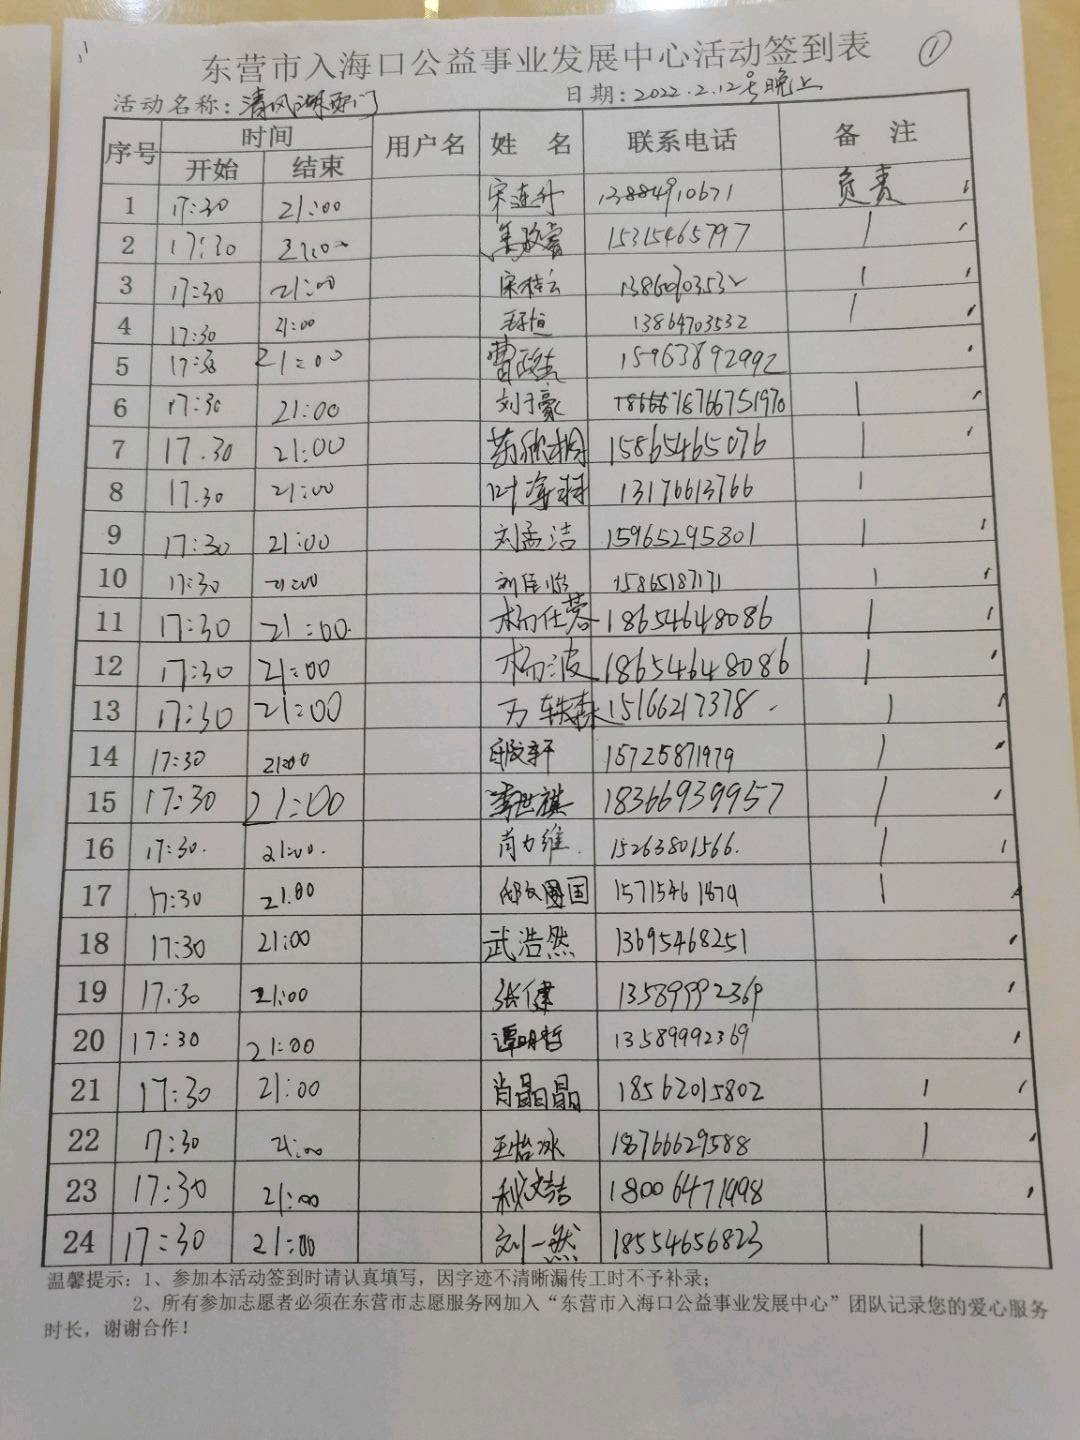 ①
东营市入海口公益事业发展中心活动签到表
活动名称：清风湖西门 日期：2022.2.12号晚上
序号 时间 用户名 姓 名 联系电话 备 注
开始 结束
1 17:30 21:00 宋连升 13884910671 负责
2 17:30 21:00 15315465797 1
3 17:30 21:00 宋桂云 1
4 17:30 21:00 13864703532 1
5 17:30 21:00 15963892992
6 17:30 21:00 刘子豪 18766751970 1
7 17.30 21:00 15865465076 1
8 17.30 21:00 13176613766 1
9 17:30 21:00 刘孟洁 15965295801 1
10 17:30 21:00 刘佳怡 15865187171 1
11 17:30 21:00. 杨仕蓉 18654648086 1
12 17:30 21:00 杨波 18654648086 1
13 17:30 21:00 万轶森 15166217378. 1
14 17:30 21:00 15725871979 1
15 17:30 21:00 李世祺 18366939957 1
16 17:30. 21:00. 肖力维. 15263801566. 1
17 17:30 21.00 1
18 17:30 21:00 武浩然 13695468251
19 17:30 21:00 张健 13589992369
20 17:30 21:00 谭明哲 13589992369
21 17:30 21:00 肖晶晶 18562015802 1
22 17:30 21:00 王怡冰 18766629588 1
23 17:30 21:00 18006471998
24 17:30 21:00 刘一然 18554656823 1
温馨提示：1、参加本活动签到时请认真填写，因字迹不清晰漏传工时不予补录；
2、所有参加志愿者必须在东营市志愿服务网加入“东营市入海口公益事业发展中心”团队记录您的爱心服务
时长，谢谢合作！